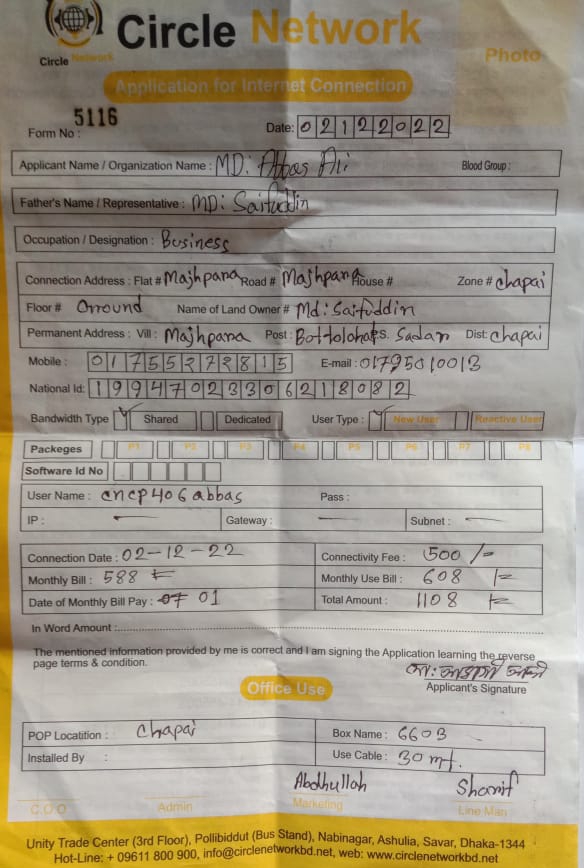 Circle Network
Circle Network
Photo
Application for Internet Connection
Form No : 5116
Date: 02122022
Applicant Name / Organization Name : MD: Abbas Ali Blood Group :
Father's Name / Representative : MD: Saifuddin
Occupation / Designation : Business
Connection Address : Flat # Majhpara Road # Majhpara House # Zone # chapai
Floor # Orround Name of Land Owner # Md: Saifuddin
Permanent Address : Vill : Majhpara Post : Bottolohat P.S. Sadar Dist: chapai
Mobile : 01755272815 E-mail : 01795010013
National Id: 19947023306218082
Bandwidth Type Shared Dedicated User Type : New User Reactive User
Packeges P1 P2 P3 P4 P5 P6 P7 P8
Software Id No
User Name : cncp406abbas Pass :
IP : — Gateway : — Subnet : —
Connection Date : 02-12-22 Connectivity Fee : 500 /-
Monthly Bill : 588 Monthly Use Bill : 608 /=
Date of Monthly Bill Pay : 01 Total Amount : 1108
In Word Amount :
The mentioned information provided by me is correct and I am signing the Application learning the reverse
page terms & condition.
Applicant's Signature
Office Use
POP Locatition : Chapai Box Name : 660B
Installed By : Use Cable : 30 mt.
Abdhullah Sharif
C.O.O Admin Marketing Line Man
Unity Trade Center (3rd Floor), Pollibiddut (Bus Stand), Nabinagar, Ashulia, Savar, Dhaka-1344
Hot-Line: + 09611 800 900, info@circlenetworkbd.net, web: www.circlenetworkbd.net